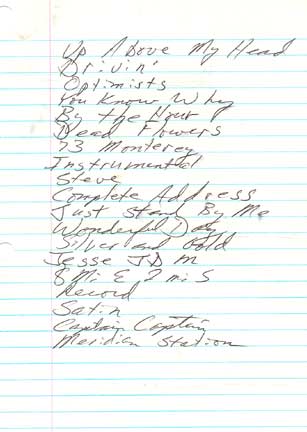 Up Above My Head
Drivin'
Optimists
You Know Why
By the Hour
Dead Flowers
73 Monterey
Instrumental
Steve
Complete Address
Just Stand By Me
Wonderful Day
Silver and Gold
Jesse JD M
8 Mi E 2 mi S
Record
Satin
Captain Captain
Meridian Station